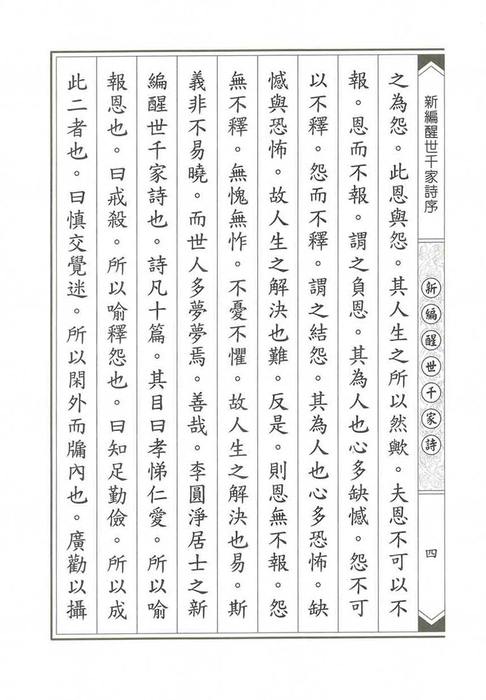 新編醒世千家詩序
新編醒世千家詩
四
之為怨。此恩與怨。其人生之所以然歟。夫恩不可以不
報。恩而不報。謂之負恩。其為人也心多缺憾。怨不可
以不釋。怨而不釋。謂之結怨。其為人也心多恐怖。缺
憾與恐怖。故人生之解決也難。反是。則恩無不報。怨
無不釋。無愧無怍。不憂不懼。故人生之解決也易。斯
義非不易曉。而世人多夢夢焉。善哉。李圓淨居士之新
編醒世千家詩也。詩凡十篇。其目曰孝悌仁愛。所以喻
報恩也。曰戒殺。所以喻釋怨也。曰知足勤儉。所以成
此二者也。曰慎交覺迷。所以閑外而牖內也。廣勸以攝